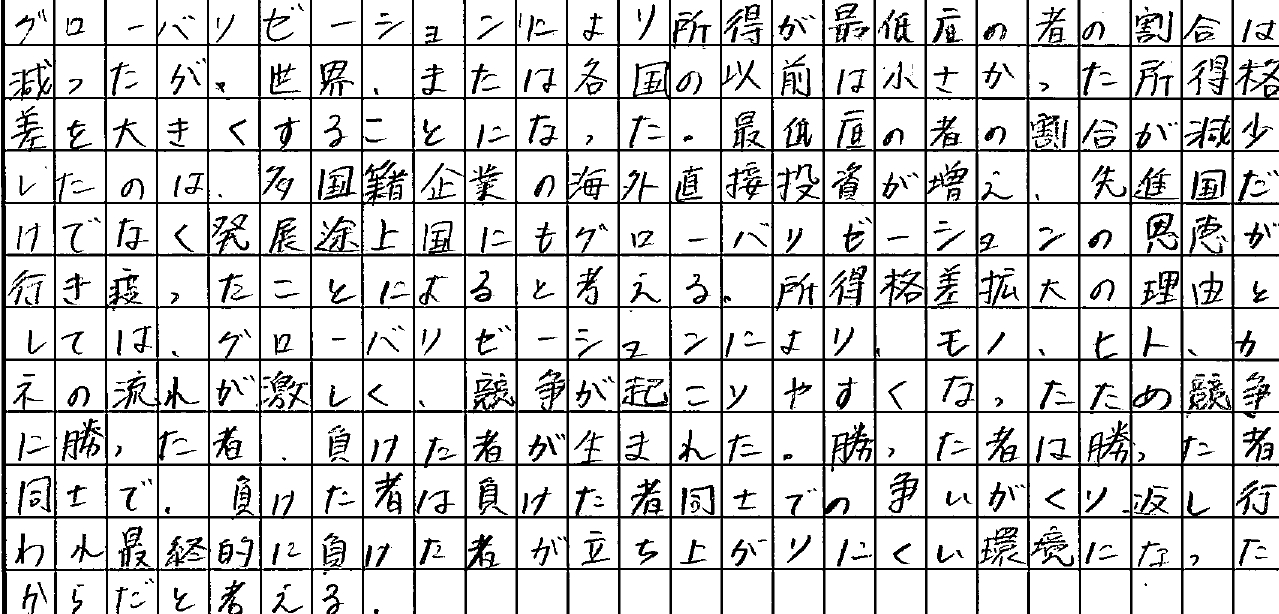 グローバリゼーションにより所得が最低度の者の割合は
減ったが、世界、または各国の以前は小さかった所得格
差を大きくすることになった。最低度の者の割合が減少
したのは、多国籍企業の海外直接投資が増え、先進国だ
けでなく発展途上国にもグローバリゼーションの恩恵が
行き疲ったことによると考える。所得格差拡大の理由と
しては、グローバリゼーションにより、モノ、ヒト、カ
ネの流れが激しく、競争が起こりやすくなったため競争
に勝った者、負けた者が生まれた。勝った者は勝った者
同士で、負けた者は負けた者同士での争いがくり返し行
われ最終的に負けた者が立ち上がりにくい環境になった
からだと考える。